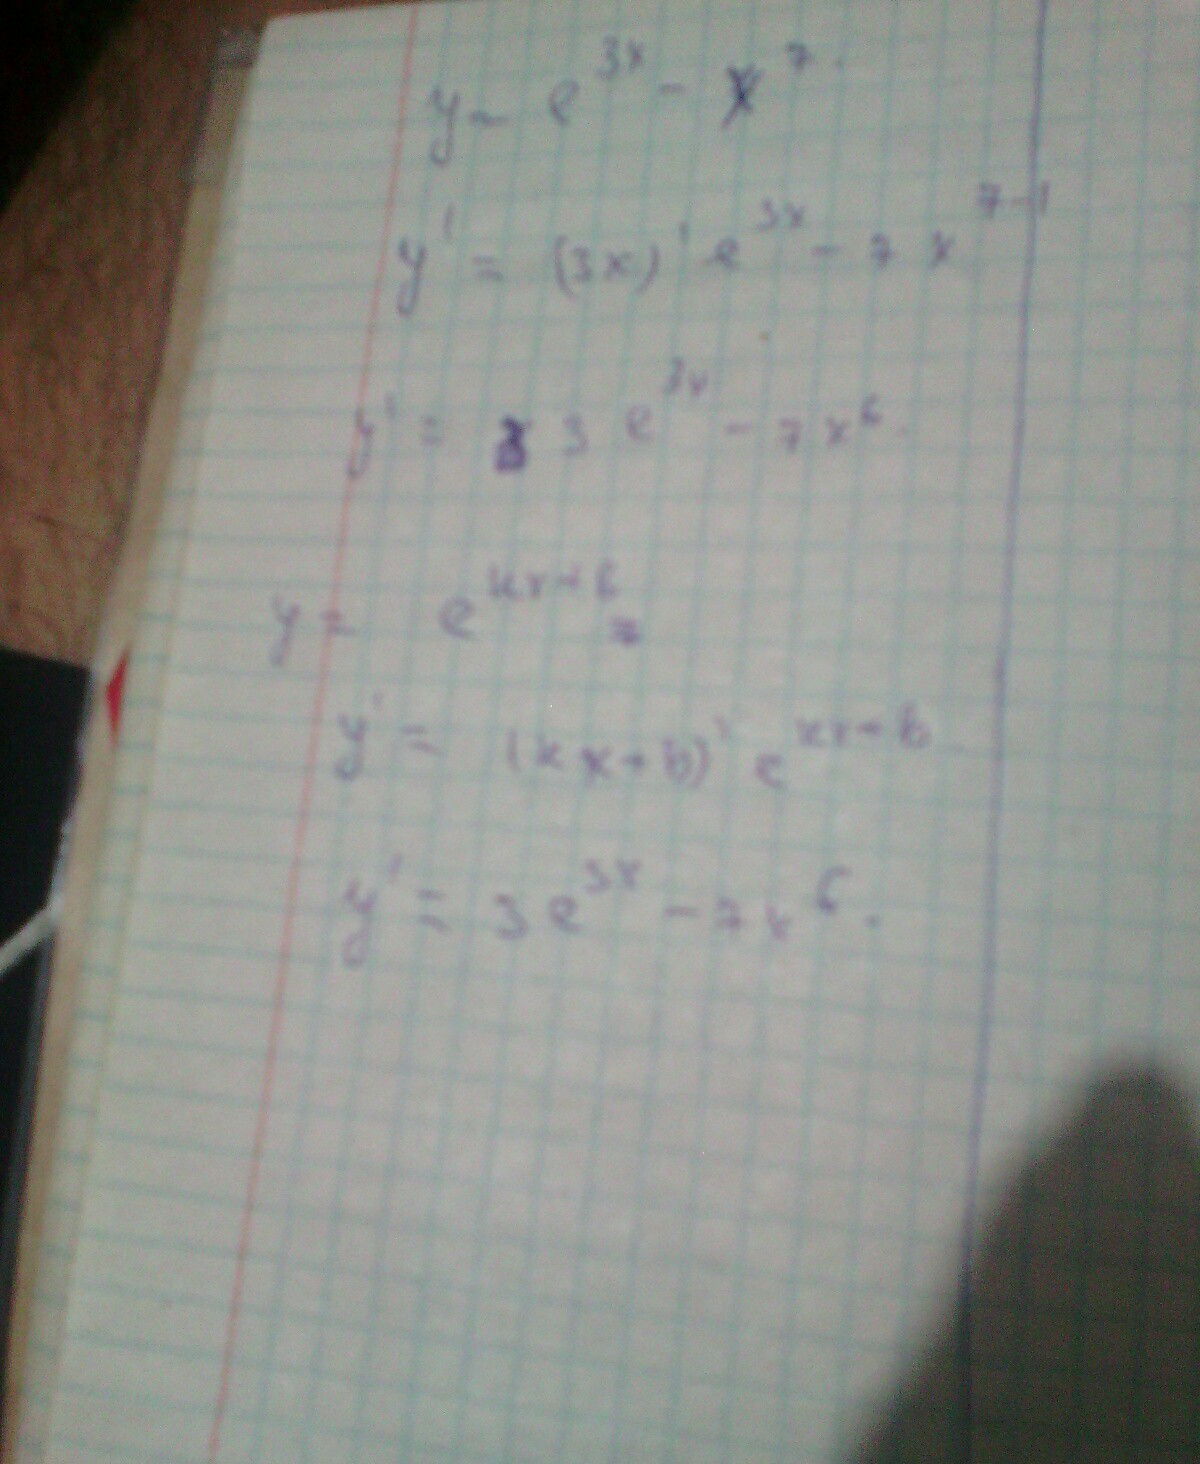 y = e^{3x} - x^7.
y' = (3x)' e^{3x} - 7x^{7-1}
y' = 3e^{3x} - 7x^6.
y = e^{kx+b} =
y' = (kx+b)' e^{kx+b}
y' = 3e^{3x} - 7x^6.